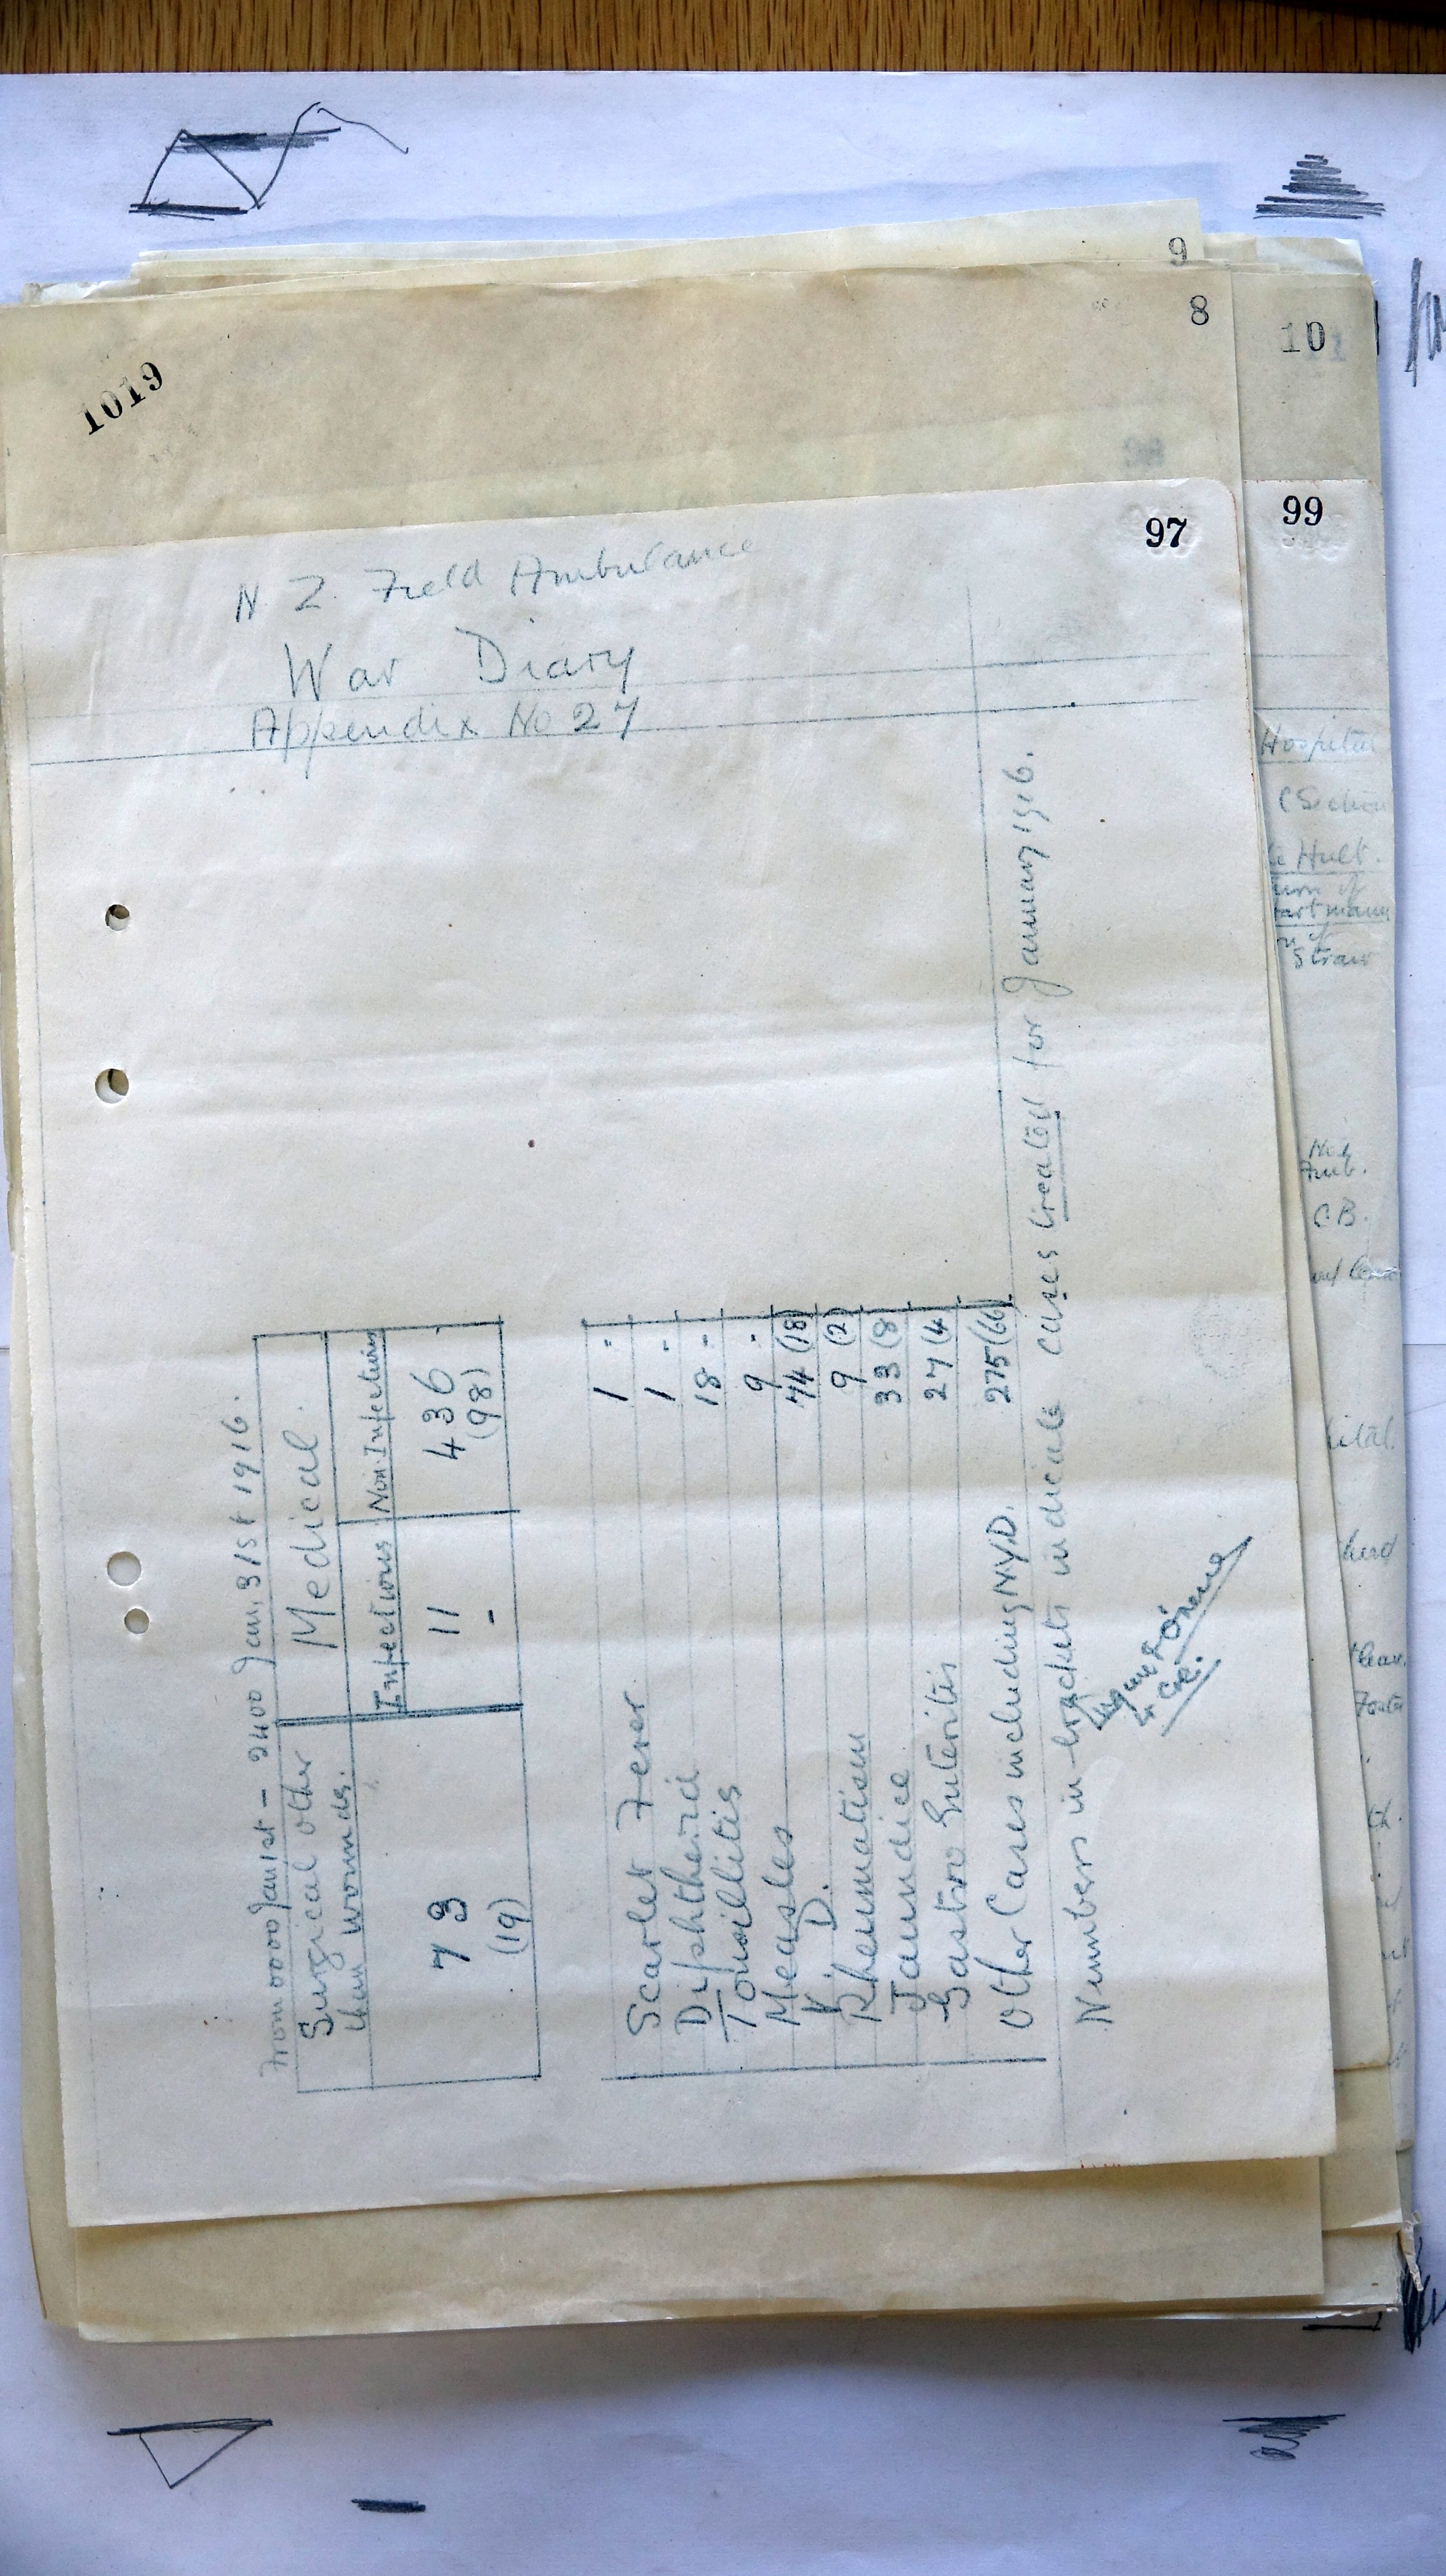 9
8
10
1019
97
99
N Z. Field Ambulance
War Diary
Appendix No 27
From 0000 Jan 1st - 2400 Jan. 31st 1916.
Surgical other than wounds.
Medical.
Infectious
Non-Infectious
73
(19)
11
-
436
(98)
Scarlet Fever 1 -
Diphtheria 1 -
Tonsillitis 18 -
Measles 9 -
V. D. 74 (18)
Rheumatism 9 (2)
Jaundice 33 (8
Gastro Enteritis 27 (4
Other Cases including N.Y.D. 275 (66)
Numbers in brackets indicate cases treated for January 1916.
Hospital
C Section
Hult.
of
Straw
Amb.
C.B.